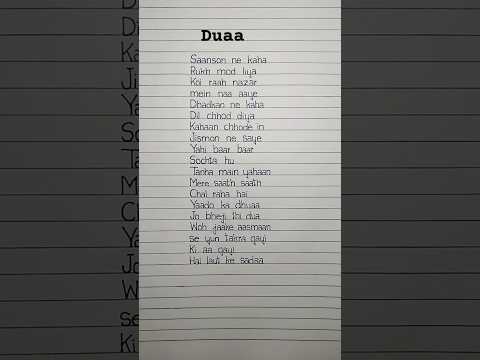 Duaa
Saanson ne kaha
Rukh mod liya
Koi raah nazar
mein naa aaye
Dhadkan ne kaha
Dil chhod diya
Kahaan chhode in
Jismon ne saye
Yahi baar baar
Sochta hu
Tanha main yahaan
Mere saath saath
Chal raha hai
Yaado ka dhuaa
Jo bheji thi dua
Woh jaake aasmaan
se yun takra gayi
Ki aa gayi
Hai laut ke sadaa